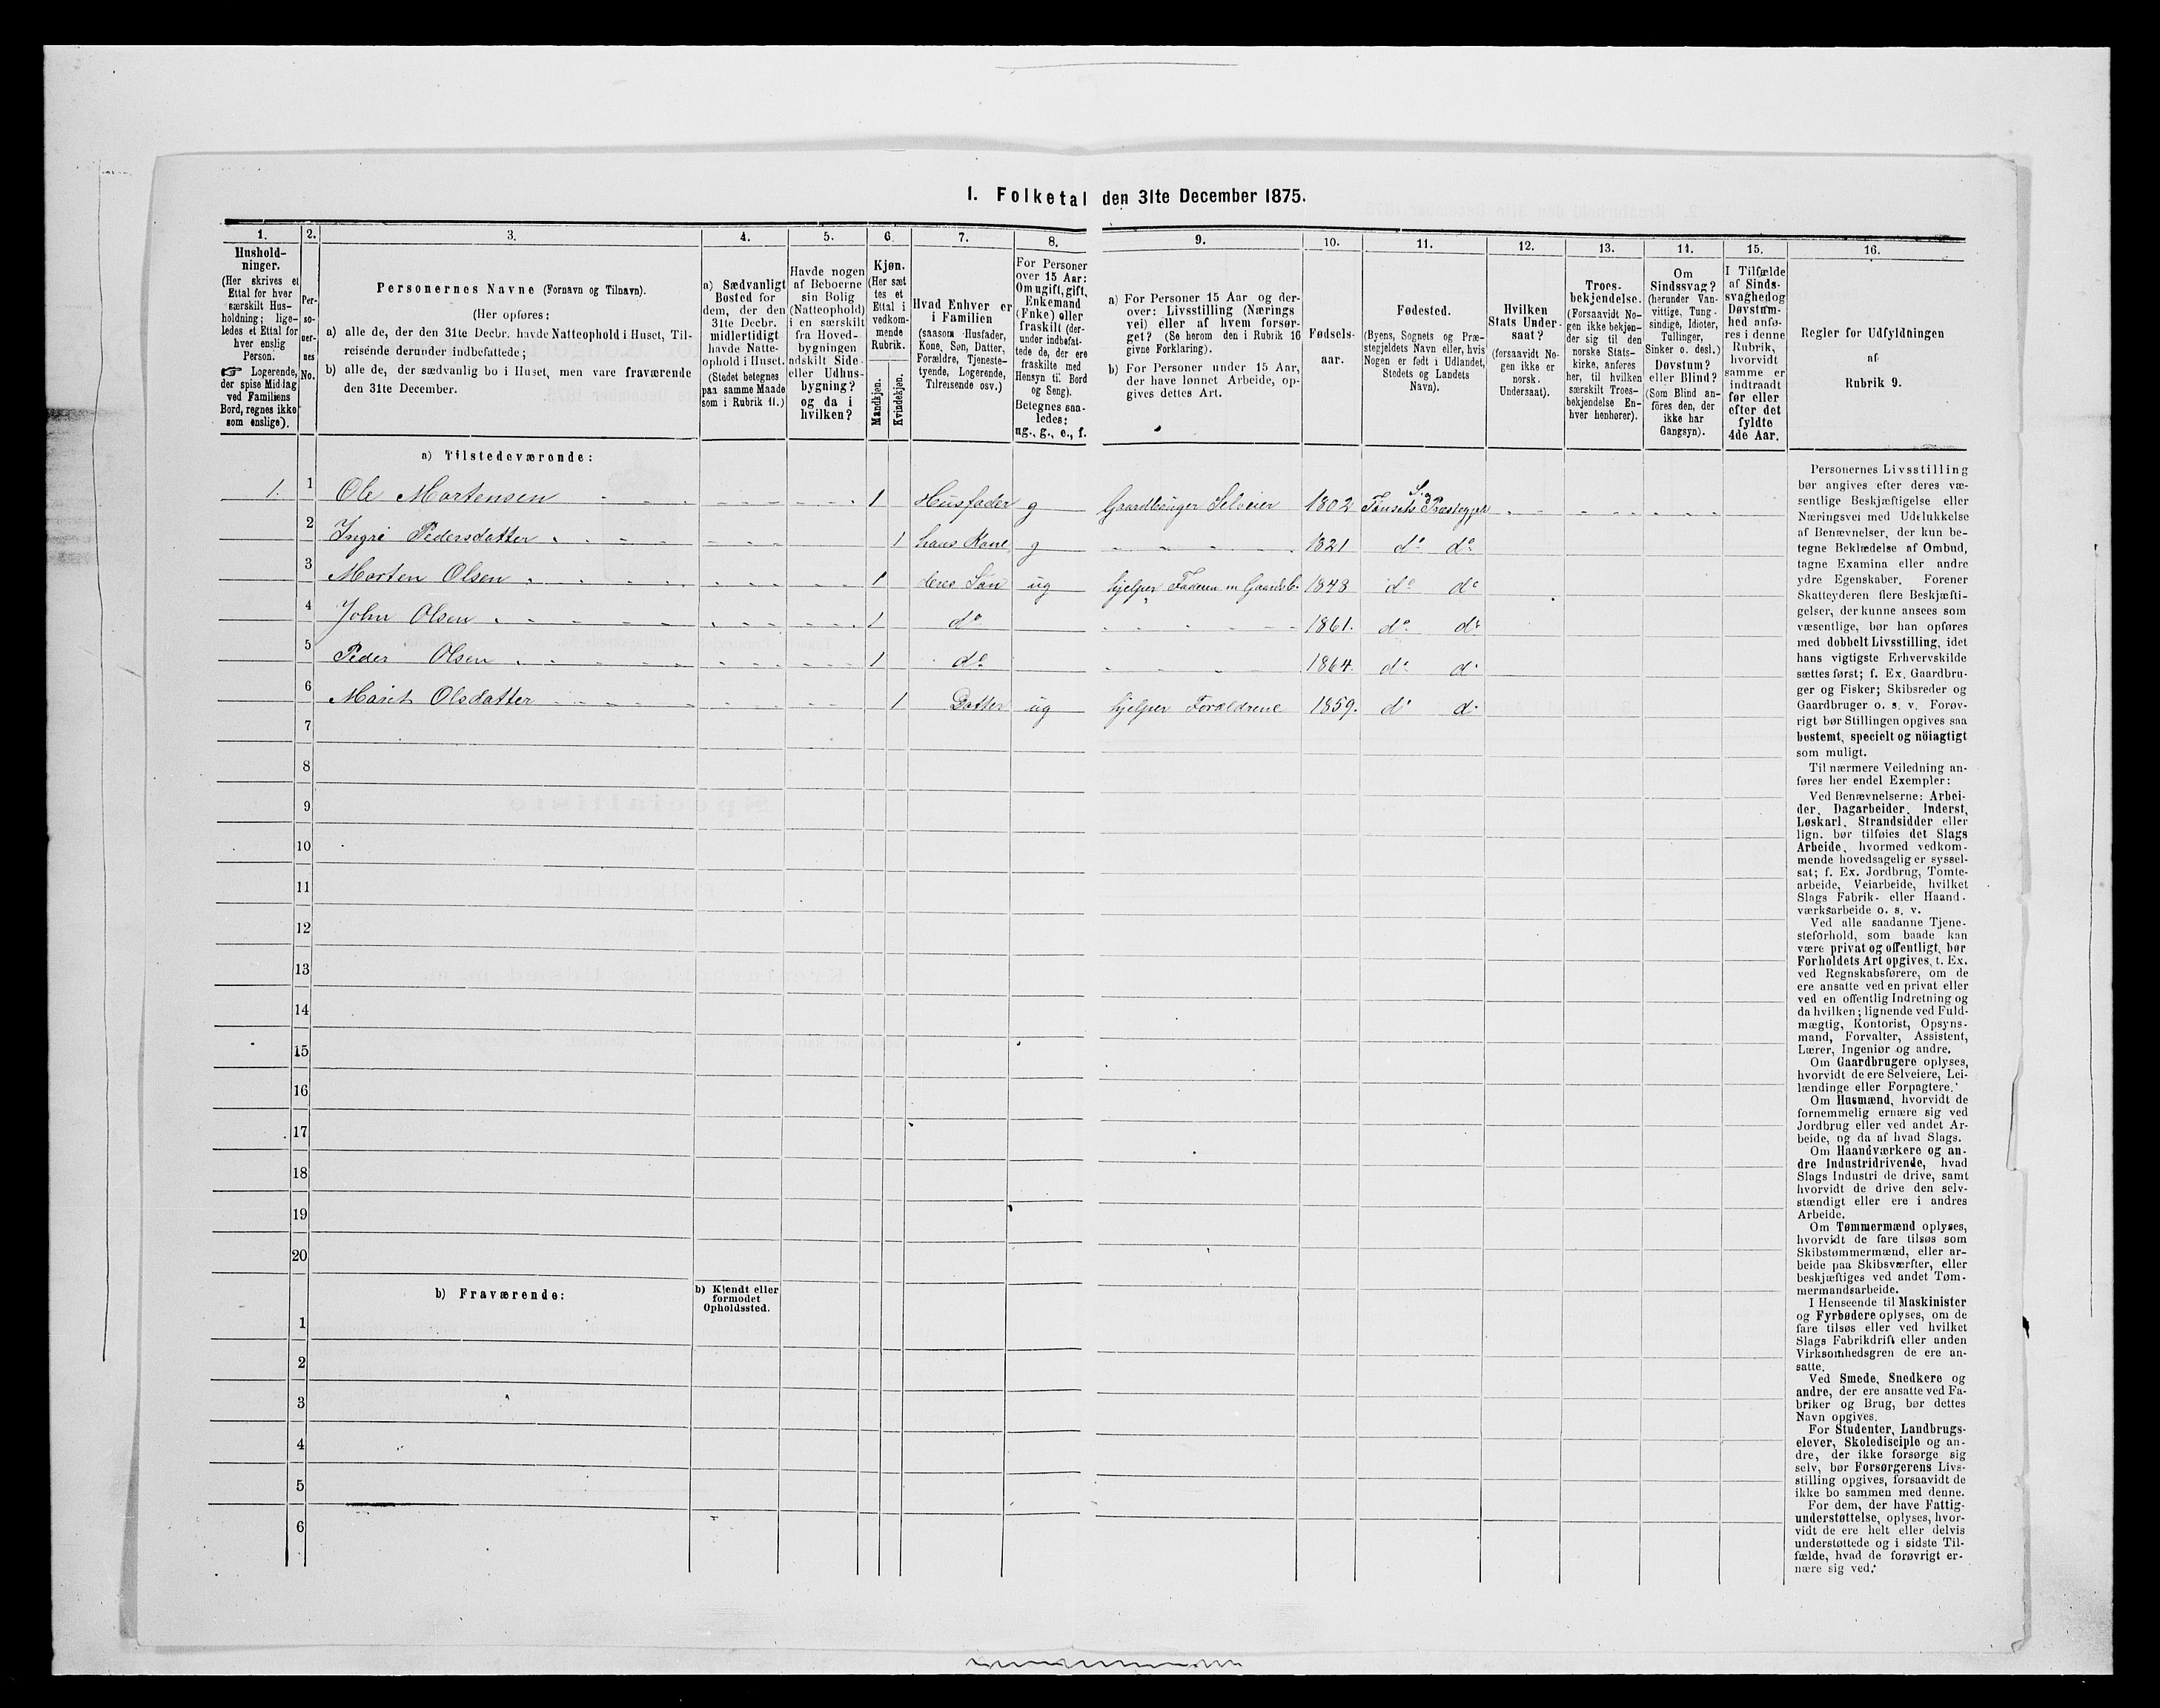 1. Folketal den 31te December 1875.
1. 2. 3. 4. 5. 6. 7. 8. 9. 10. 11. 12. 13. 14. 15. 16.
Hushold-
ninger.
(Her skrives et
Ettal for hver
særskilt Hus-
holdning; lige-
ledes et Ettal for
hver enslig
Person.
☞ Logerende,
der spise Middag
ved Familiens
Bord, regnes ikke
som enslige).
Per-
so-
ner-
nes
No.
Personernes Navne (Fornavn og Tilnavn).
(Her opføres:
a) alle de, der den 31te Decbr. havde Natteophold i Huset, Til-
reisende derunder indbefattede;
b) alle de, der sædvanlig bo i Huset, men vare fraværende
den 31te December.
a) Sædvanligt
Bosted for
dem, der den
31te Decbr.
midlertidigt
havde Natte-
ophold i Huset.
(Stedet betegnes
paa samme Maade
som i Rubrik 11.)
Havde nogen
af Beboerne
sin Bolig
(Natteophold)
i en særskilt
fra Hoved-
bygningen
adskilt Side-
eller Udhus-
bygning?
og da i
hvilken?
Kjøn.
(Her sæt
tes et
Ettal i
vedkom-
mende
Rubrik.
Mandkjøn.
Kvindekjøn.
Hvad Enhver er
i Familien
(saasom Husfader,
Kone, Søn, Datter,
Forældre, Tjeneste-
tyende, Logerende,
Tilreisende osv.)
For Personer
over 15 Aar:
Om ugift, gift,
Enkemand
(Enke) eller
fraskilt (der-
under indbefat-
tede de, der ere
fraskilte med
Hensyn til Bord
og Seng).
Betegnes saa-
ledes:
ug., g., e., f.
a) For Personer 15 Aar og der-
over: Livsstilling (Nærings
vei) eller af hvem forsør-
get? (Se herom den i Rubrik 16
givne Forklaring).
b) For Personer under 15 Aar,
der have lønnet Arbeide, op-
gives dettes Art.
Fødsels-
aar.
Fødested.
(Byens, Sognets og Præ-
stegjeldets Navn eller, hvis
Nogen er født i Udlandet,
Stedets og Landets
Navn).
Hvilken
Stats Under-
saat?
(forsaavidt No-
gen ikke er
norsk
Undersaat).
Troes-
bekjendelse.
(Forsaavidt No-
gen ikke bekjen-
der sig til den
norske Stats-
kirke, anføres
her, til hvilken
særskilt Troes-
bekjendelse En-
hver henhører).
Om
Sindssvag?
(herunder Van-
vittige, Tung-
sindige, Idioter,
Tullinger,
Sinker o. desl.)
Døvstum?
eller Blind?
(Som Blind an-
føres den, der
ikke har
Gangsyn).
I Tilfælde
af Sinds-
svaghed og
Døvstum-
hed anfø-
res i denne
Rubrik,
hvorvidt
samme er
indtraadt
før eller
efter det
fyldte
4de Aar.
Regler for Udfyldningen
af
Rubrik 9.
a) Tilstedeværende:
1. 1 Ole Mortensen 1 Husfader g Gaardbruger Selveier 1802 Tønsets Præstegjeld
2 Ingri Pedersdatter 1 hans Kone g 1821 do do
3 Morten Olsen 1 deres Søn ug hjelper Faderen m Gaardsb. 1848 do do
4 John Olsen 1 do 1861. do do
5 Peder Olsen 1 do 1864. do d.
6 Marit Olsdatter 1 Datter ug hjelper Forældrene 1859. do d.
7
8
9
10
11
12
13
14
15
16
17
18
19
20
b) Fraværende:
b) Kjendt eller
formodet
Opholdssted.
1
2
3
4
5
6
Personernes Livsstilling
bør angives efter deres væ-
sentlige Beskjæftigelse eller
Næringsvei med Udelukkelse
af Benævnelser, der kun be-
tegne Beklædelse af Ombud,
tagne Examina eller andre
ydre Egenskaber. Forener
Skatteyderen flere Beskjæfti-
gelser, der kunne ansees som
væsentlige, bør han opføres
med dobbelt Livsstilling, idet
hans vigtigste Erhvervskilde
sættes først; f. Ex. Gaardbru-
ger og Fisker; Skibsreder og
Gaardbruger o. s. v. Forøv-
rigt bør Stillingen opgives saa
bestemt, specielt og nöiagtigt
som muligt.
Til nærmere Veiledning an-
føres her endel Exempler:
Ved Benævnelserne: Arbei-
der, Dagarbeider, Inderst,
Løskarl, Strandsidder eller
lign. bør tilføies det Slags
Arbeide, hvormed vedkom-
mende hovedsagelig er syssel-
sat; f. Ex. Jordbrug, Tomte-
arbeide, Veiarbeide, hvilket
Slags Fabrik- eller Haand-
værksarbeide o. s. v.
Ved alle saadanne Tjene-
steforhold, som baade kan
være privat og offentligt, bør
Forholdets Art opgives, t. Ex.
ved Regnskabsførere, om de
ere ansatte ved en privat eller
ved en offentlig Indretning og
da hvilken; lignende ved Fuld-
mægtig, Kontorist, Opsyns-
mand, Forvalter, Assistent,
Lærer, Ingeniør og andre.
Om Gaardbrugere oplyses,
hvorvidt de ere Selveiere, Lei-
lændinge eller Forpagtere.
Om Husmænd, hvorvidt de
fornemmelig ernære sig ved
Jordbrug eller ved andet Ar-
beide, og da af hvad Slags.
Om Haandværkere og an-
dre Industridrivende, hvad
Slags Industri de drive, samt
hvorvidt de drive den selv-
stændigt eller ere i andres
Arbeide.
Om Tømmermænd oplyses,
hvorvidt de fare tilsøs som
Skibstømmermænd, eller ar-
beide paa Skibsværfter, eller
beskjæftiges ved andet Tøm-
mermandsarbeide.
I Henseende til Maskinister
og Fyrbødere oplyses, om de
fare tilsøs eller ved hvilket
Slags Fabrikdrift eller anden
Virksomhedsgren de ere an-
satte.
Ved Smede, Snedkere og
andre, der ere ansatte ved Fa-
briker og Brug, bør dettes
Navn opgives.
For Studenter, Landbrugs-
elever, Skoledisciple og an-
dre, der ikke forsørge sig
selv, bør Forsørgerens Livs-
stilling opgives, forsaavidt de
ikke bo sammen med denne.
For dem, der have Fattig-
understøttelse, oplyses, hvor-
vidt de ere helt eller delvis
understøttede og i sidste Til-
fælde, hvad de forøvrigt er-
nære sig ved.